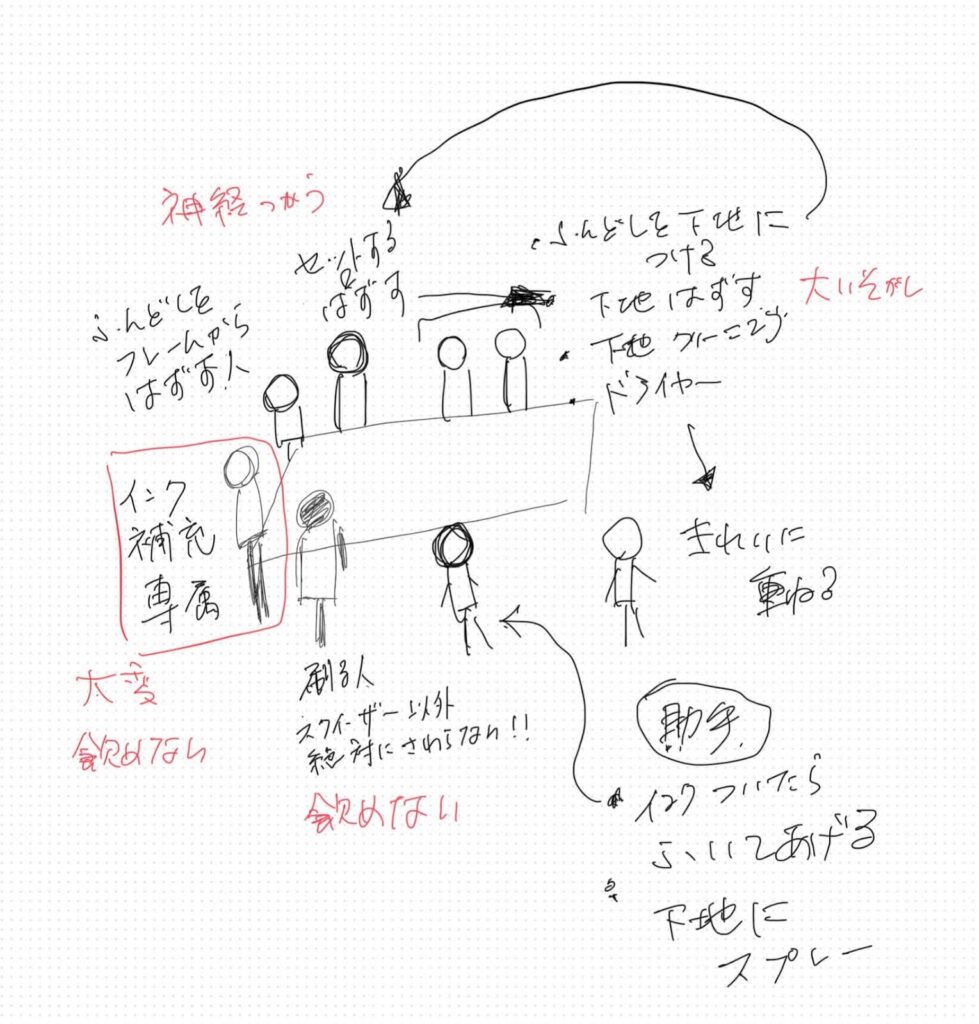 神経つかう
セットする
はずす
ふんどしを
フレームから
はずす人
・ふんどしを下地に
つける
下地はずす
・下地クリーニング
・ドライヤー
大いそがし
インク
補充
専属
大変
飲めない
刷る人
スクイーザー以外
絶対にさわらない!!
飲めない
きれいに
重ねる
助手
インクついたら
ふいてあげる
下地に
スプレー